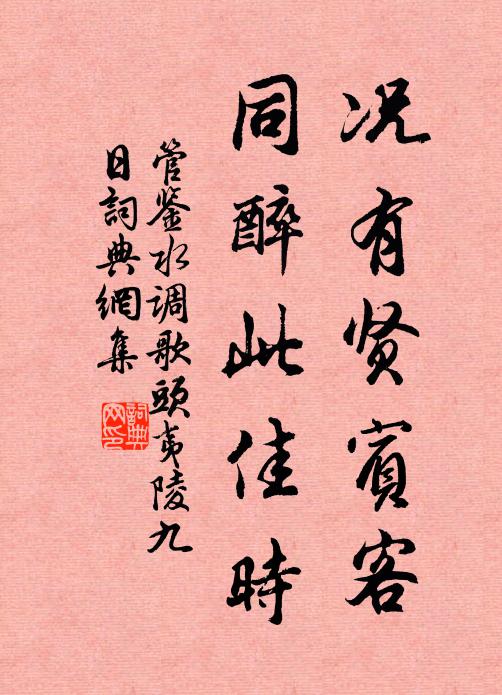 况有贤宾客
同醉此佳時
管鉴水调歌頭夷陵九
日詞典網集
詞典网印